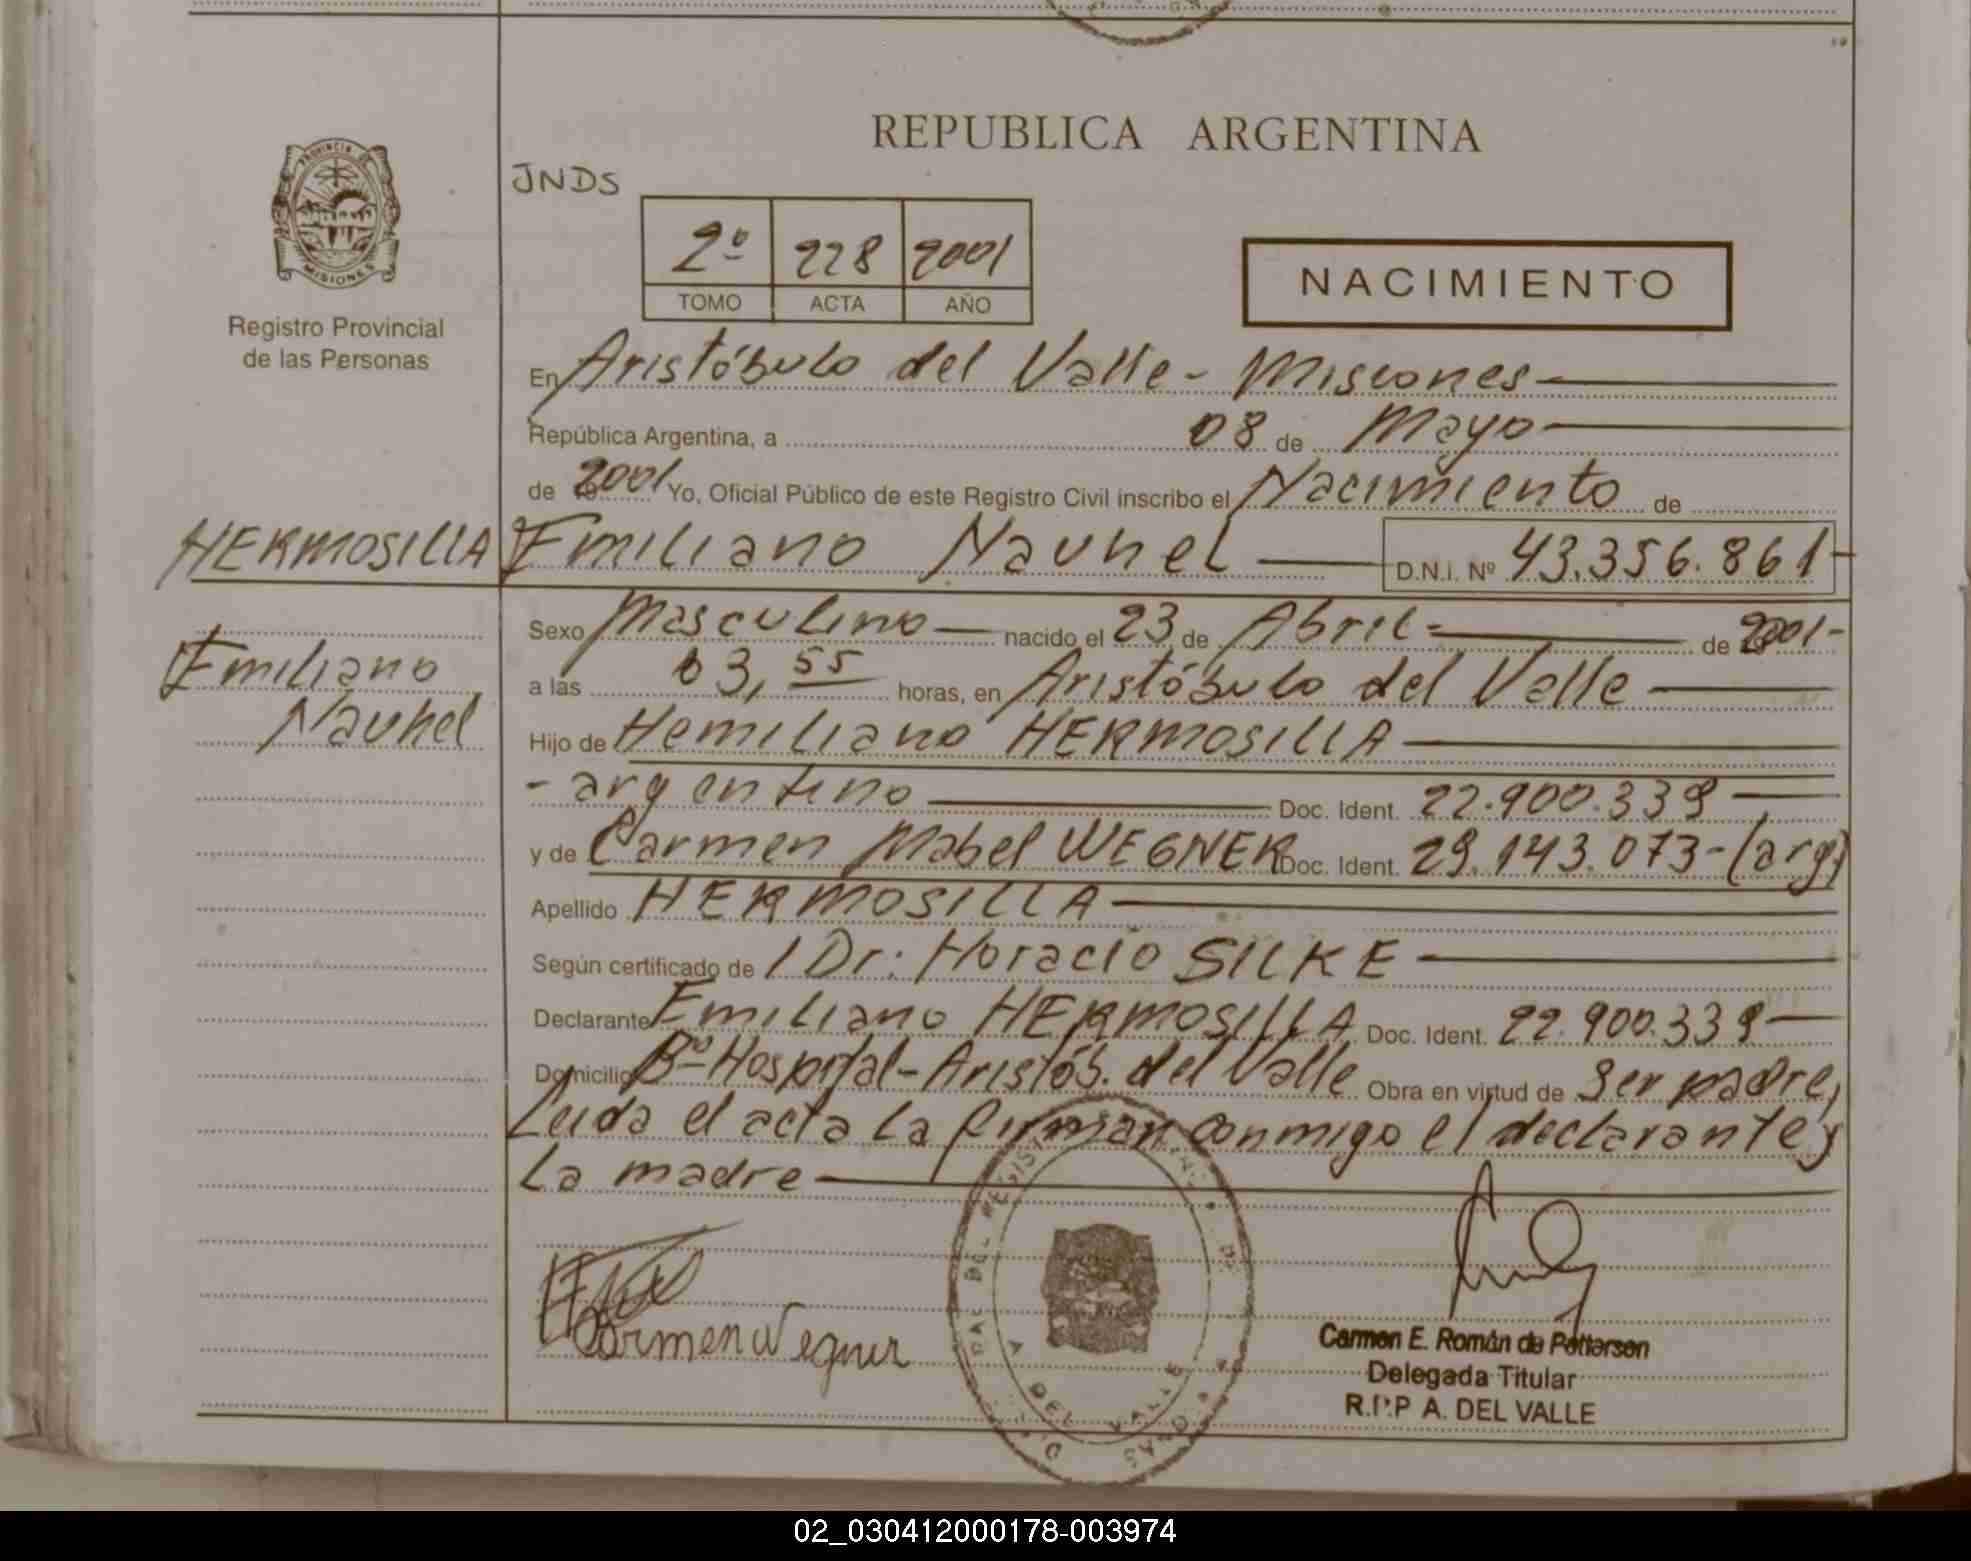 REPUBLICA ARGENTINA
PROVINCIA DE
MISIONES
Registro Provincial
de las Personas
JNDS
2º 228 2001
TOMO ACTA AÑO
NACIMIENTO
En Aristóbulo del Valle - Misiones
República Argentina, a 08 de Mayo
de 2001 Yo, Oficial Público de este Registro Civil inscribo el Nacimiento de
HERMOSILLA Emiliano Nauhel D.N.I. Nº 43.356.861
Sexo Masculino nacido el 23 de Abril- de 2001-
Emiliano
Nauhel
a las 03,55 horas, en Aristóbulo del Valle
Hijo de Hemiliano HERMOSILLA
- argentino Doc. Ident. 22.900.339
y de Carmen Mabel WEGNER Doc. Ident. 29.143.073-(arg)
Apellido HERMOSILLA
Según certificado de / Dr: Horacio SILKE
Declarante Emiliano HERMOSILLA Doc. Ident. 22.900.339
Domicilio Bº Hospital - Aristób. del Valle Obra en virtud de ser padre,
Leida el acta la firman conmigo el declarante y
La madre
Carmen Wegner
DEL VALLE
Carmen E. Román de Pettersen
Delegada Titular
R.P.P A. DEL VALLE
02_030412000178-003974